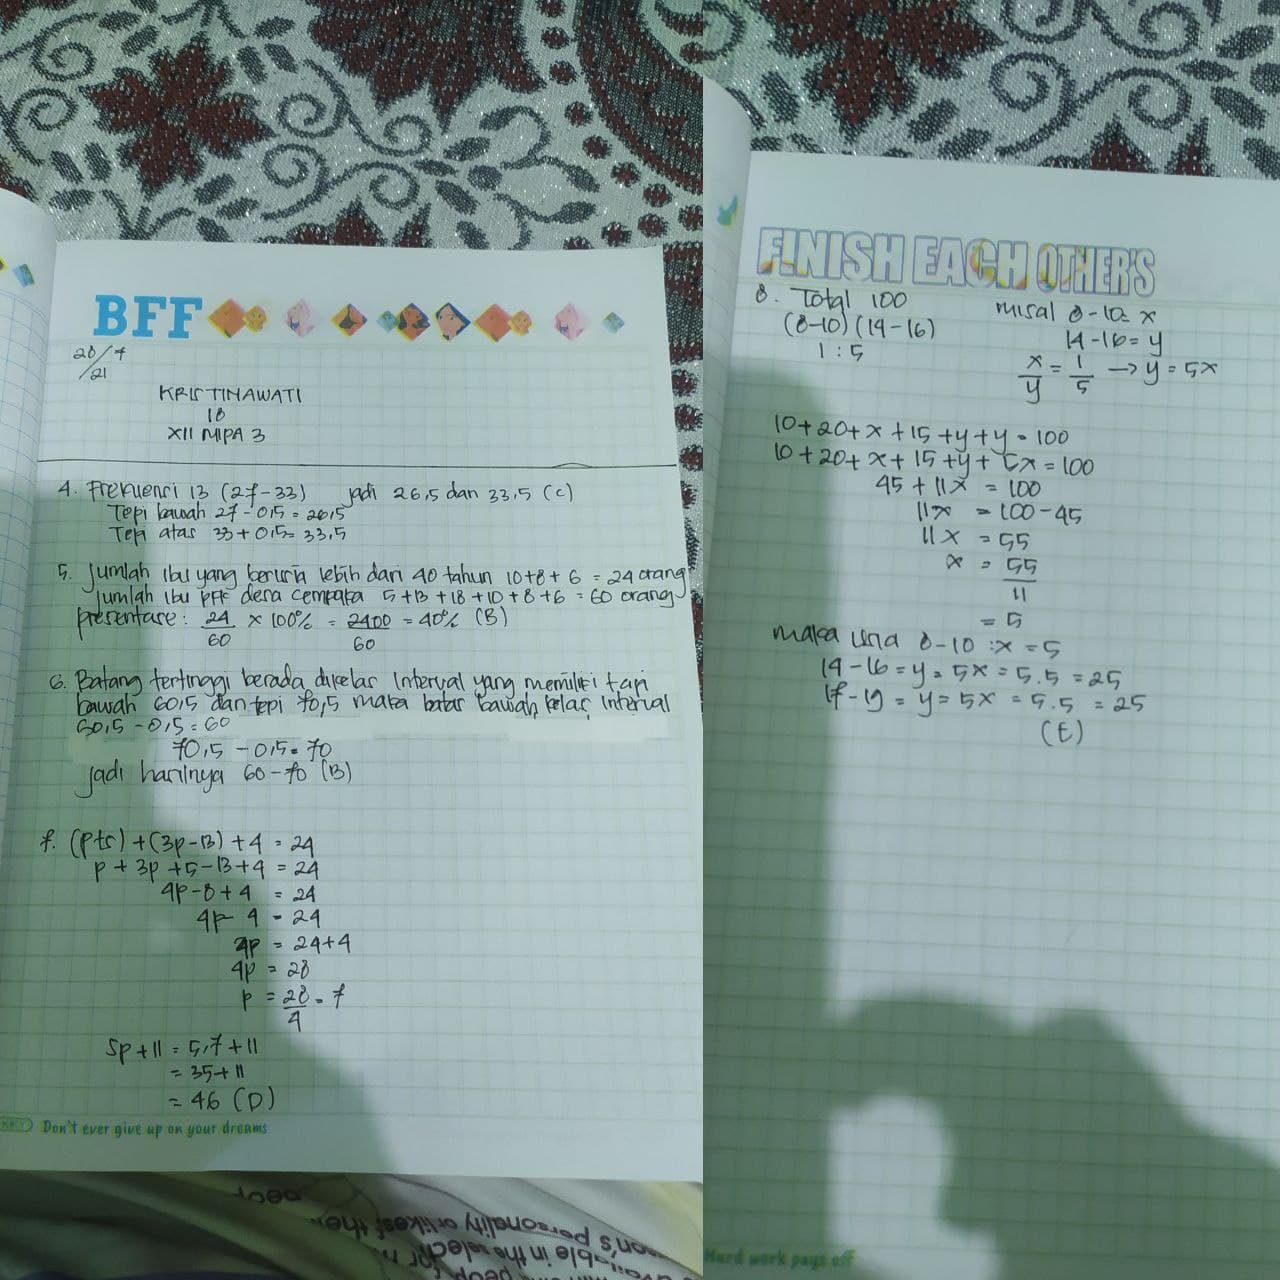 BFF
28/7
/21
KRISTINAWATI
18
XII MIPA 3
4. Frekuensi 13 (27-33) jadi 26,5 dan 33,5 (C)
Tepi bawah 27-0,5 = 26,5
Tepi atas 33+0,5= 33,5
5. Jumlah ibu yang berusia lebih dari 40 tahun 10+8+6 = 24 orang
Jumlah ibu PKK desa cempaka 5+13+18+10+8+6 = 60 orang
presentase: 24/60 × 100% = 2400/60 = 40% (B)
6. Batang tertinggi berada dikelas interval yang memiliki tepi
bawah 60,5 dan tepi 70,5 maka batas bawah kelas interval
60,5-0,5=60
70,5-0,5=70
jadi hasilnya 60-70 (B)
7. (p+5)+(3p-13)+4 = 24
p+3p+5-13+4 = 24
4p-8+4 = 24
4p-4 = 24
4p = 24+4
4p = 28
p = 28/4 = 7
5p+11 = 5.7+11
= 35+11
= 46 (D)
Don't ever give up on your dreams
FINISH EACH OTHER'S
8. Total 100 misal 8-10= x
(8-10)(14-16) 14-16=y
1:5 x/y = 1/5 → y = 5x
10+20+x+15+y+y=100
10+20+x+15+y+5x=100
45+11x = 100
11x = 100-45
11x = 55
x = 55/11
= 5
maka usia 8-10 :x=5
14-16=y=5x=5.5=25
17-19=y=5x=5.5=25
(E)
Hard work pays off